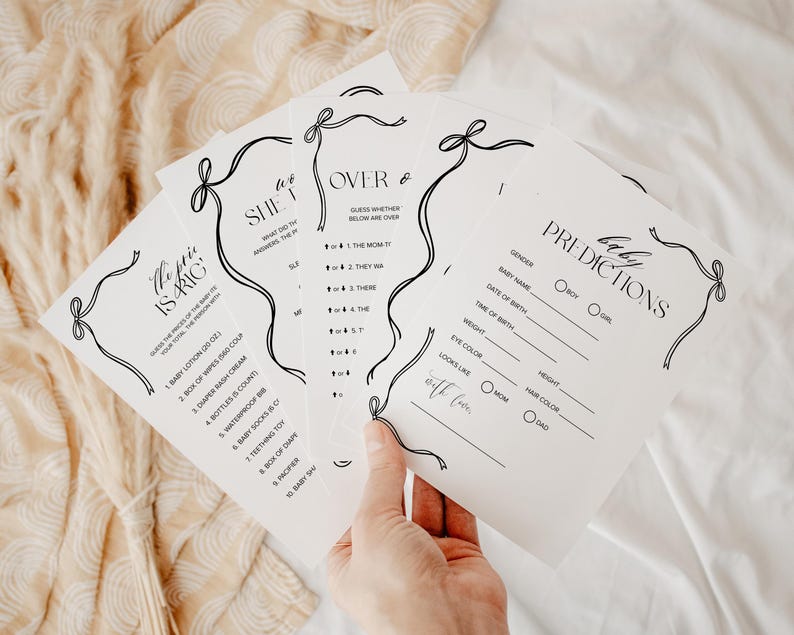 the price
IS RIG
GUESS THE PRICES OF THE BABY ITE
YOUR TOTAL. THE PERSON WITH
1. BABY LOTION (20 OZ.)
2. BOX OF WIPES (560 COUN
3. DIAPER RASH CREAM
4. BOTTLES (5 COUNT)
5. WATERPROOF BIB
6. BABY SOCKS (6 C
7. TEETHING TOY
8. BOX OF DIAPE
9. PACIFIER
10. BABY SHA
SHE
WHAT DID TH
ANSWERS. THE P
OVER o
GUESS WHETHER
BELOW ARE OVER
or 1. THE MOM-TO
or 2. THEY WA
or 3. THERE
or 4. THE
or 5. T
or 6
or
o
baby
PREDICTIONS
GENDER BOY GIRL
BABY NAME
DATE OF BIRTH
TIME OF BIRTH
WEIGHT HEIGHT
EYE COLOR HAIR COLOR
LOOKS LIKE MOM DAD
with love,